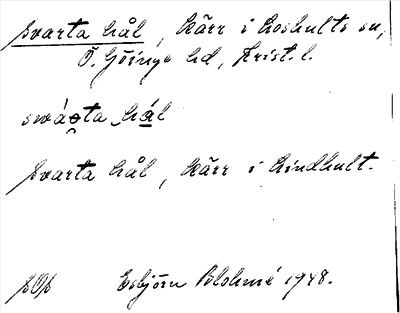 Svarta hål, Kärr i Loshults sn,
Ö. Göinge hd, Krist. l.
svarta hål, kärr i Kindhult.
Esbjörn Blohmé 1948.